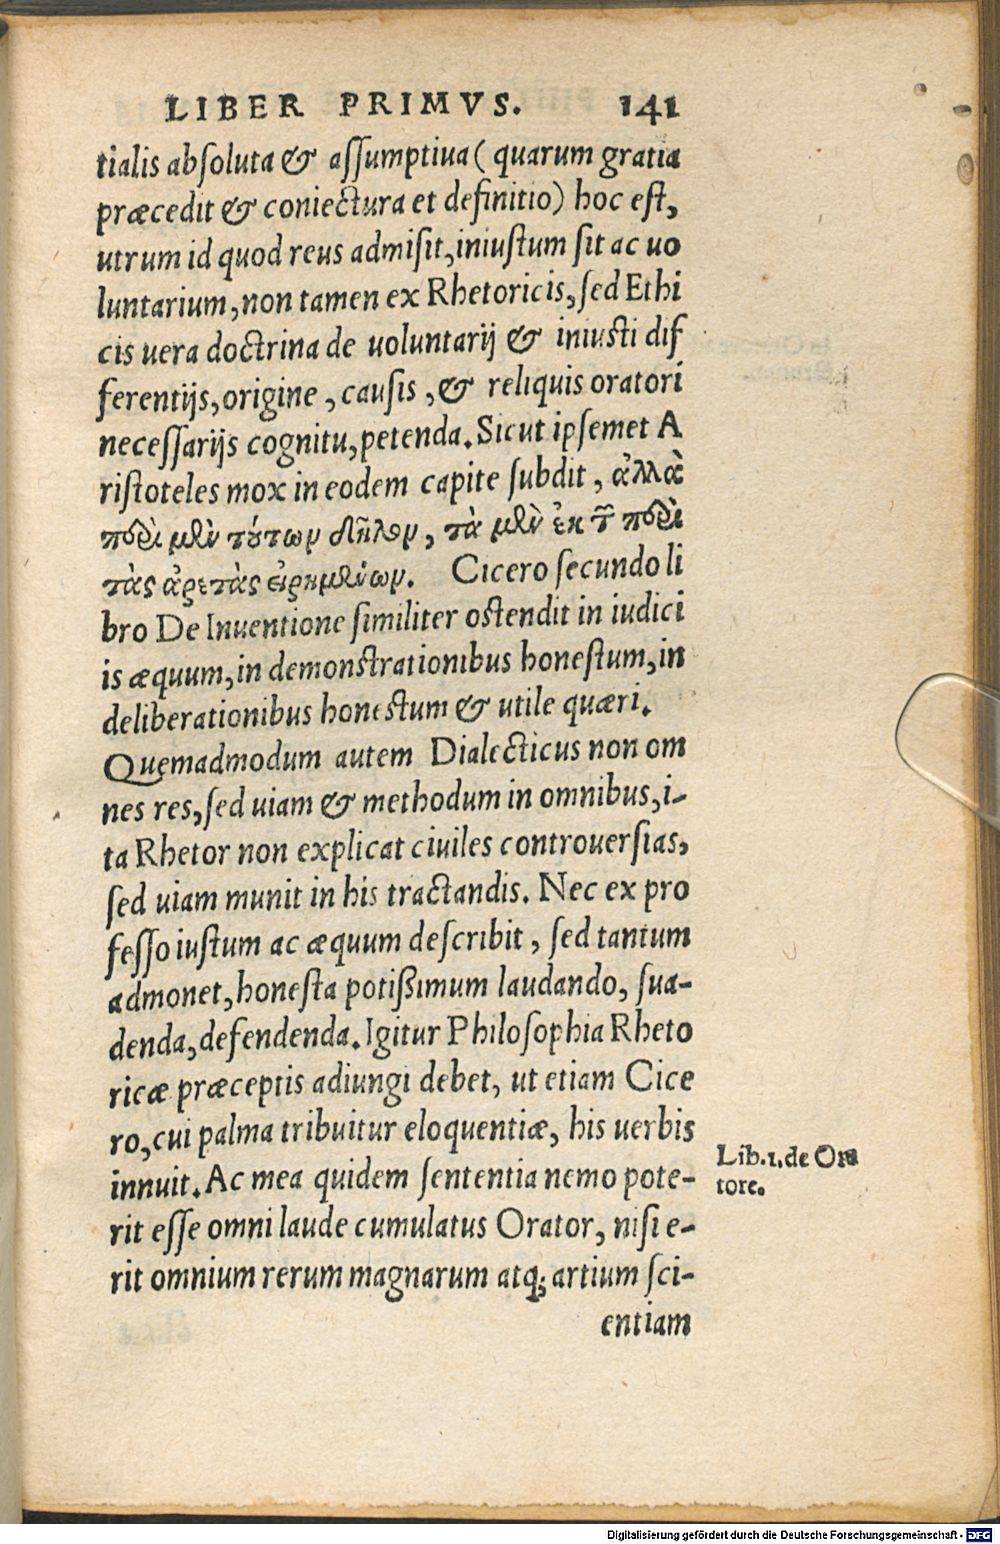 LIBER PRIMVS. 141
tialis absoluta & assumptiua (quarum gratia
præcedit & coniectura et definitio) hoc est,
utrum id quod reus admisit, iniustum sit ac uo
luntarium, non tamen ex Rhetoricis, sed Ethi
cis uera doctrina de uoluntarij & iniusti dif
ferentijs, origine, causis, & reliquis oratori
necessarijs cognitu, petenda. Sicut ipsemet A
ristoteles mox in eodem capite subdit, ἀλλὰ
περὶ μὲν τούτων δῆλον, τὰ μὲν ἐκ τῶν περὶ
τὰς ἀρετὰς εἰρημένων. Cicero secundo li
bro De Inuentione similiter ostendit in iudici
is æquum, in demonstrationibus honestum, in
deliberationibus honestum & utile quæri.
Quemadmodum autem Dialecticus non om
nes res, sed uiam & methodum in omnibus, i-
ta Rhetor non explicat ciuiles controuersias,
sed uiam munit in his tractandis. Nec ex pro
fesso iustum ac æquum describit, sed tantum
admonet, honesta potißimum laudando, sua-
denda, defendenda. Igitur Philosophia Rheto
ricæ præceptis adiungi debet, ut etiam Cice
ro, cui palma tribuitur eloquentiæ, his uerbis
innuit. Ac mea quidem sententia nemo pote-
rit esse omni laude cumulatus Orator, nisi e-
rit omnium rerum magnarum atq; artium sci-
entiam
Lib.1.de Ora
tore.
Digitalisierung gefördert durch die Deutsche Forschungsgemeinschaft - DFG